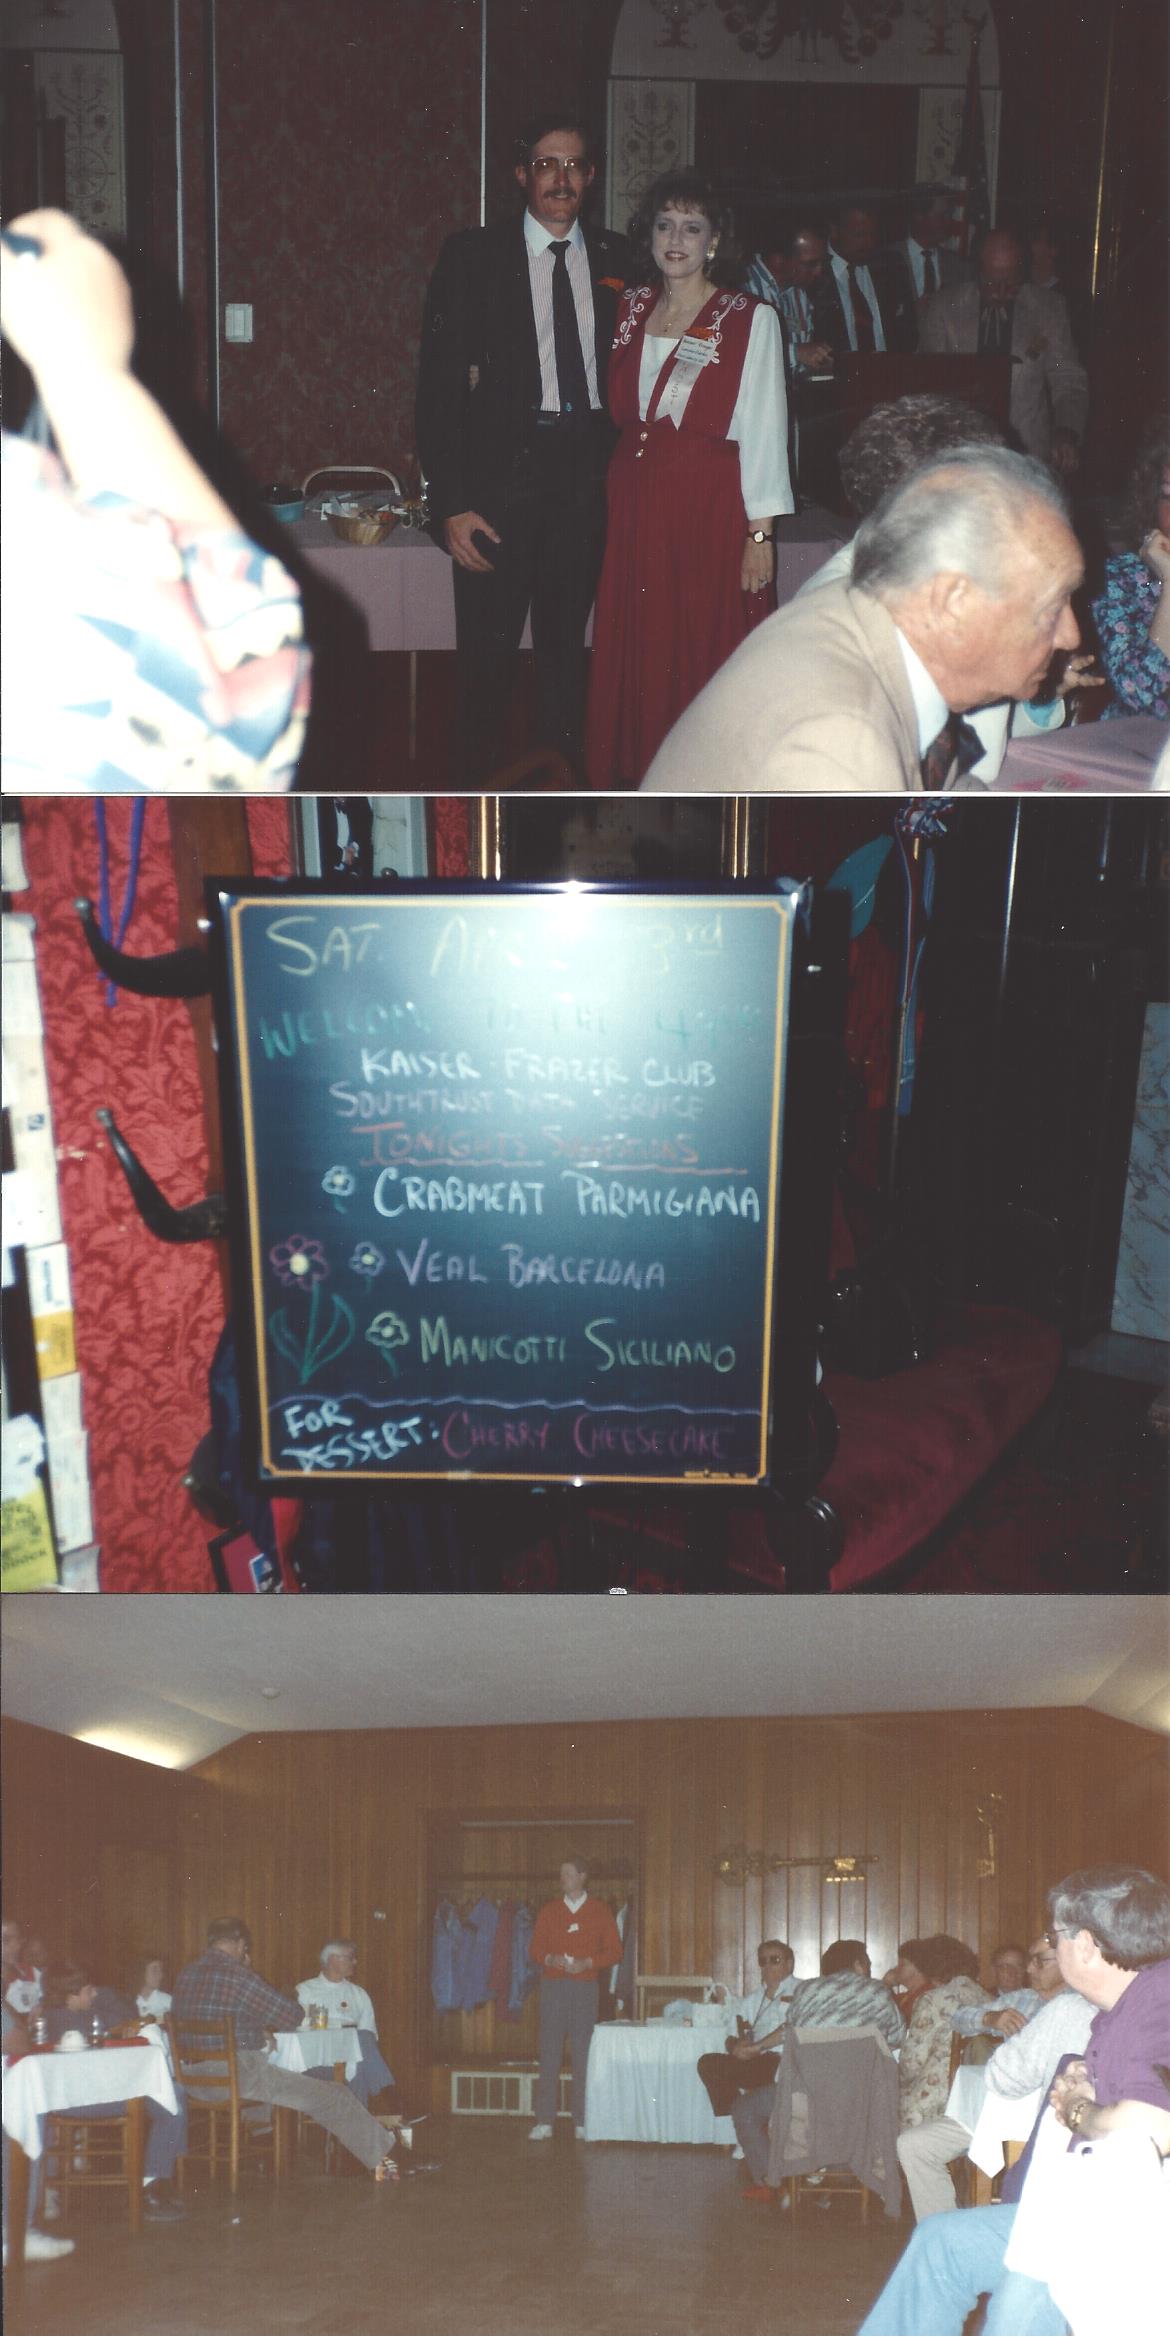 HOST
SAT. APRIL 3rd
WELCOME TO THE
KAISER-FRAZER CLUB
SOUTHTRUST DATA SERVICE
TONIGHTS SUGGESTIONS
CRABMEAT PARMIGIANA
VEAL BARCELONA
MANICOTTI SICILIANO
FOR
DESSERT: CHERRY CHEESECAKE